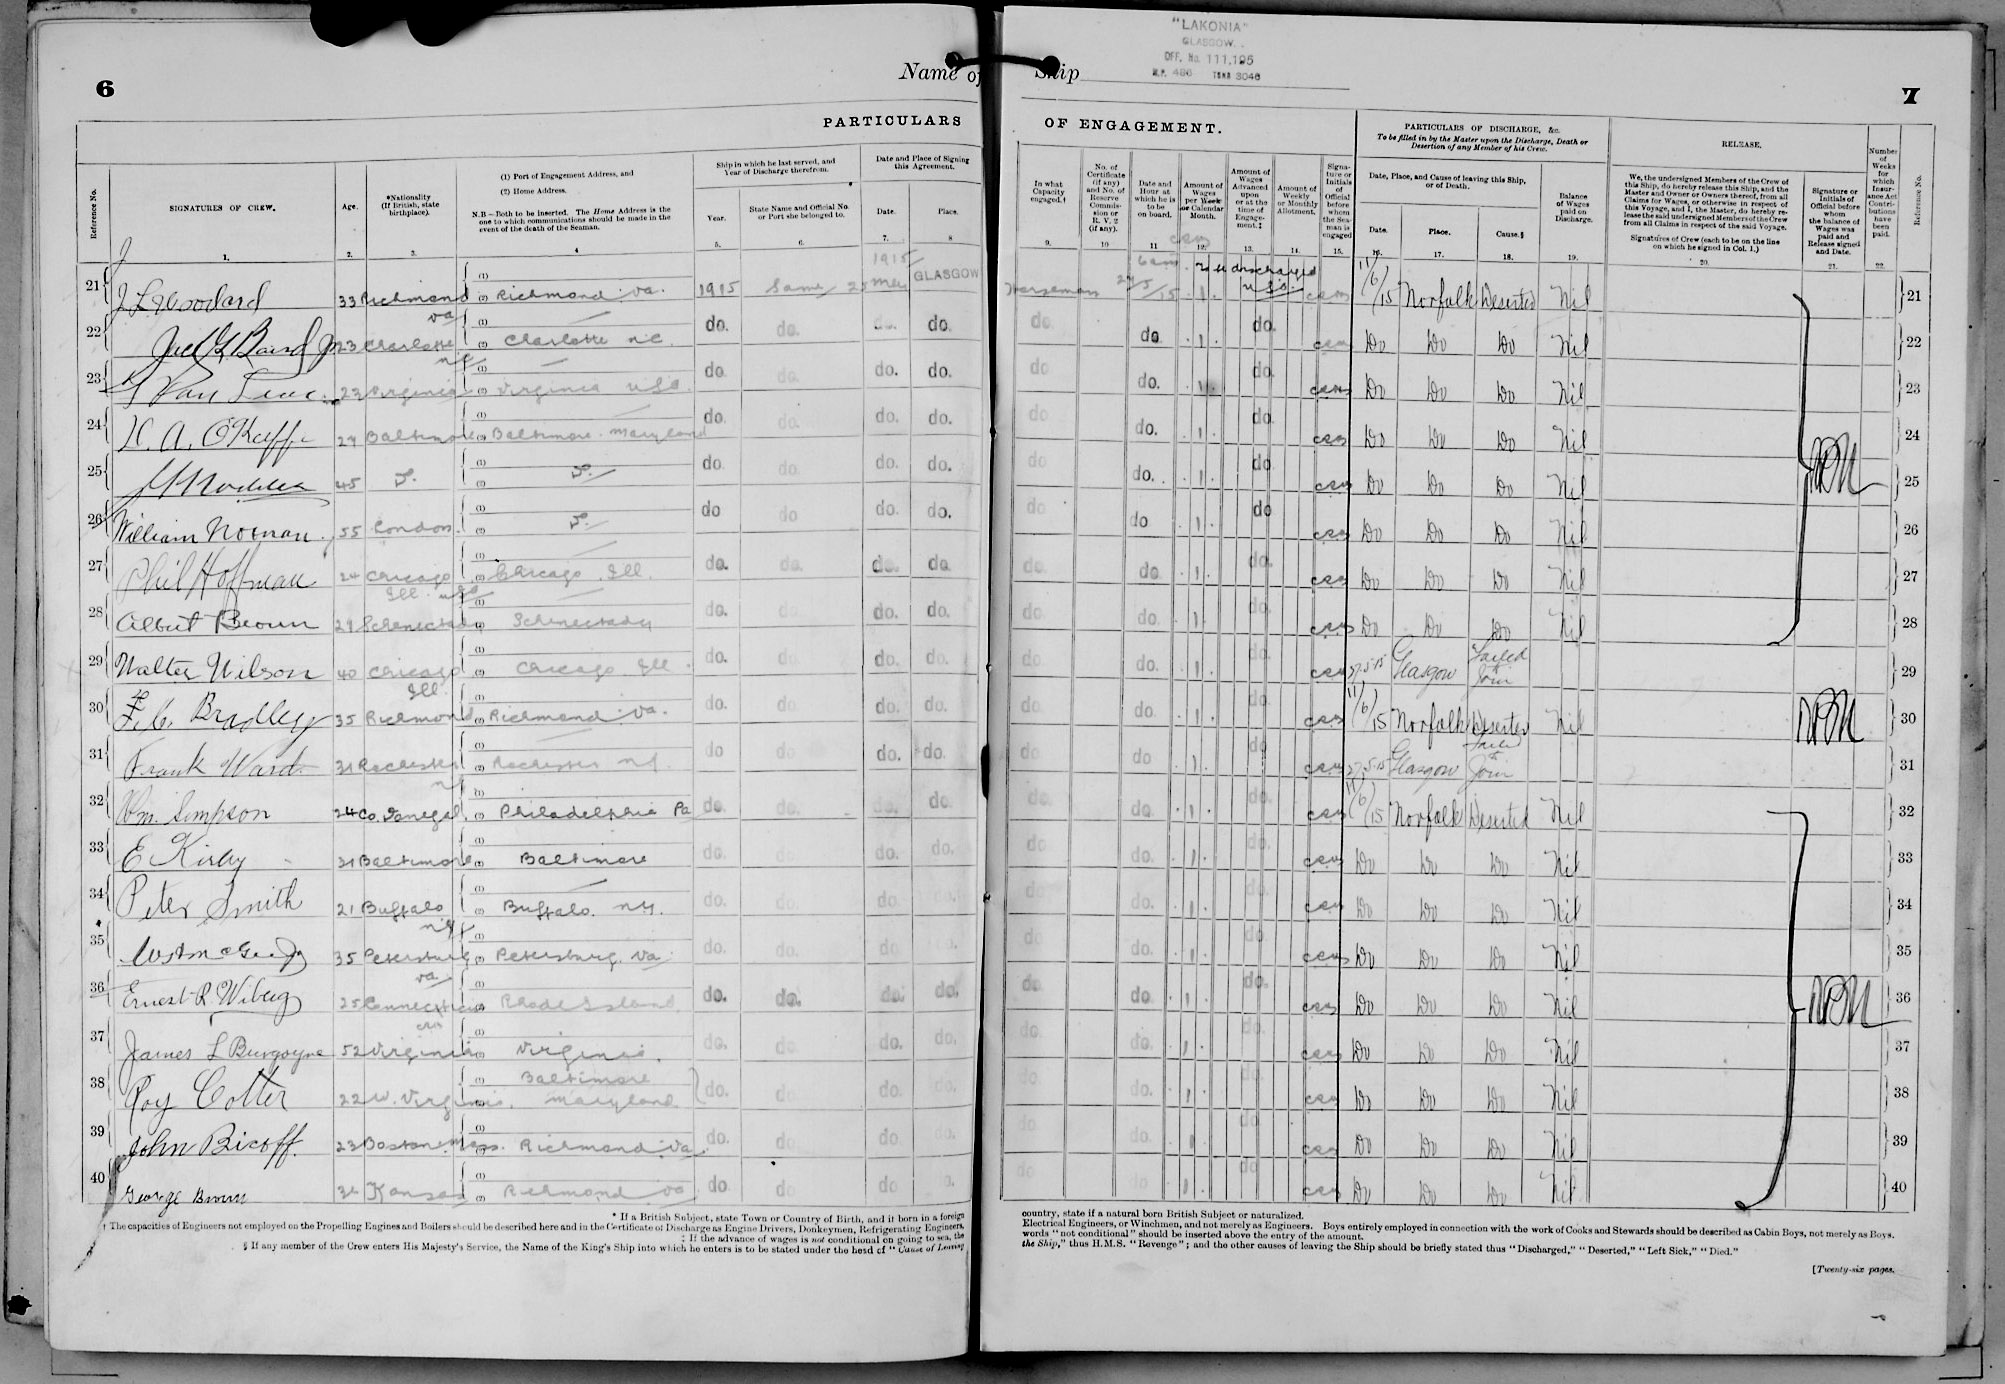 6
Name of Ship
"LAKONIA"
GLASGOW.
OFF. No. 111,195
N.P. 486 TONS 3046
7
PARTICULARS OF ENGAGEMENT.
PARTICULARS OF DISCHARGE, &c.
To be filled in by the Master upon the Discharge, Death or
Desertion of any Member of his Crew.
RELEASE.
Reference No.
SIGNATURES OF CREW.
Age.
*Nationality
(If British, state
birthplace).
(1) Port of Engagement Address, and
(2) Home Address.
N.B.—Both to be inserted. The Home Address is the
one to which communications should be made in the
event of the death of the Seaman.
Ship in which he last served, and
Year of Discharge therefrom.
Year.
State Name and Official No.
or Port she belonged to.
Date and Place of Signing
this Agreement.
Date.
Place.
In what
Capacity
engaged.†
No. of
Certificate
(if any)
and No. of
Reserve
Commis-
sion or
R. V. 2
(if any).
Date and
Hour at
which he is
to be
on board.
Amount of
Wages
per Week
or Calendar
Month.
Amount of
Wages
Advanced
upon
or at the
time of
Engage-
ment.‡
Amount of
Weekly
or Monthly
Allotment.
Signa-
ture or
Initials
of
Official
before
whom
the Sea-
man is
engaged
Date, Place, and Cause of leaving this Ship,
or of Death.
Date.
Place.
Cause.§
Balance
of Wages
paid on
Discharge.
We, the undersigned Members of the Crew of
this Ship, do hereby release this Ship, and the
Master and Owner or Owners thereof, from all
Claims for Wages, or otherwise in respect of
this Voyage, and I, the Master, do hereby re-
lease the said undersigned Members of the Crew
from all Claims in respect of the said Voyage.
Signatures of Crew (each to be on the line
on which he signed in Col. 1.)
Signature or
Initials of
Official before
whom
the balance of
Wages was
paid and
Release signed
and Date.
Number
of
Weeks
for
which
Insur-
ance Act
Contri-
butions
have
been
paid.
Reference No.
1. 2. 3. 4 5. 6. 7. 8 9. 10 11 12. 13. 14. 15. 16. 17. 18. 19. 20. 21. 22.
21 J L Woodard 33 Richmond va (1) (2) Richmond va. 1915 Same 25 May 1915 GLASGOW Horseman 6 am 27/5/15 1. csm 11/6/15 Norfolk Deserted Nil 21
22 23 Charlotte n.c. (1) (2) Charlotte n.c. do. do. do. do do .1. do. csm Do Do Do Nil 22
23 23 Virginia (1) (2) Virginia U.S.A. do do. do. do. do do. .1. do. csm Do Do Do Nil 23
24 H. A. O'Keeffe 29 Baltimore (1) (2) Baltimore. Maryland do. do. do. do. do do. .1. do. csm Do Do Do Nil 24
25 45 (1) (2) do do. do. do. do do. .1. do. csm Do Do Do Nil 25
26 William Norman 55 London. (1) (2) do do do. do. do do .1. do csm Do Do Do Nil 26
27 Phil Hoffman 24 Chicago Ill. U.S.A. (1) (2) Chicago. Ill. do. do. do. do. do. do .1. do. csm Do Do Do Nil 27
28 Albert Brown 29 Schenectady (1) (2) Schenectady do. do. do. do. do. do. .1. do. csm Do Do Do Nil 28
29 Walter Wilson 40 Chicago Ill (1) (2) Chicago. Ill. do. do. do. do. do. do. .1. do. csm 27.5.15 Glasgow Failed to Join 29
30 Bradley 35 Richmond (1) (2) Richmond va. do. do. do. do. do. do .1. do. csm 11/6/15 Norfolk Deserted Nil 30
31 Frank Ward 31 Rochester N.Y. (1) (2) Rochester N.Y. do do. do. do. do. do .1. do csm 27.5.15 Glasgow Failed to Join 31
32 Wm. Simpson 24 Co. Donegal. (1) (2) Philadelphia Pa do. do. do. do do. do. .1. do. csm 11/6/15 Norfolk Deserted Nil 32
33 E Kirby 31 Baltimore (1) (2) Baltimore do. do. do. do. do do. .1. do. csm Do Do Do Nil 33
34 Peter Smith 21 Buffalo N.Y. (1) (2) Buffalo. N.Y. do. do. do. do. do. do. .1. do. csm Do Do Do Nil 34
35 35 Petersburg va (1) (2) Petersburg. Va. do. do. do do. do do. .1. do. csm Do Do Do Nil 35
36 Ernest R. Wiberg 25 Connecticut (1) (2) Rhode Island. do. do. do. do. do. do .1. do. csm Do Do Do Nil 36
37 James L Burgoyne 52 Virginia (1) (2) Virginia. do. do do. do. do. do. .1. do. csm Do Do Do Nil 37
38 Roy Cotter 22 W. Virginia. (1) Baltimore (2) Maryland do. do. do. do. do. do. .1. do. csm Do Do Do Nil 38
39 John Bicoff. 23 Boston. Mass. Richmond. Va do. do. do. do. do. do. .1. do csm Do Do Do Nil 39
40 George Brown Kansas (1) (2) Richmond Va do do do. do. do do. .1. do csm Do Do Do Nil 40
* If a British Subject, state Town or Country of Birth, and if born in a foreign country, state if a natural born British Subject or naturalized.
† The capacities of Engineers not employed on the Propelling Engines and Boilers should be described here and in the Certificate of Discharge as Engine Drivers, Donkeymen, Refrigerating Engineers, Electrical Engineers, or Winchmen, and not merely as Engineers. Boys entirely employed in connection with the work of Cooks and Stewards should be described as Cabin Boys, not merely as Boys.
‡ If the advance of wages is not conditional on going to sea, the words "not conditional" should be inserted above the entry of the amount.
§ If any member of the Crew enters His Majesty's Service, the Name of the King's Ship into which he enters is to be stated under the head of "Cause of Leaving the Ship," thus H.M.S. "Revenge"; and the other causes of leaving the Ship should be briefly stated thus "Discharged," "Deserted," "Left Sick," "Died."
[Twenty-six pages.